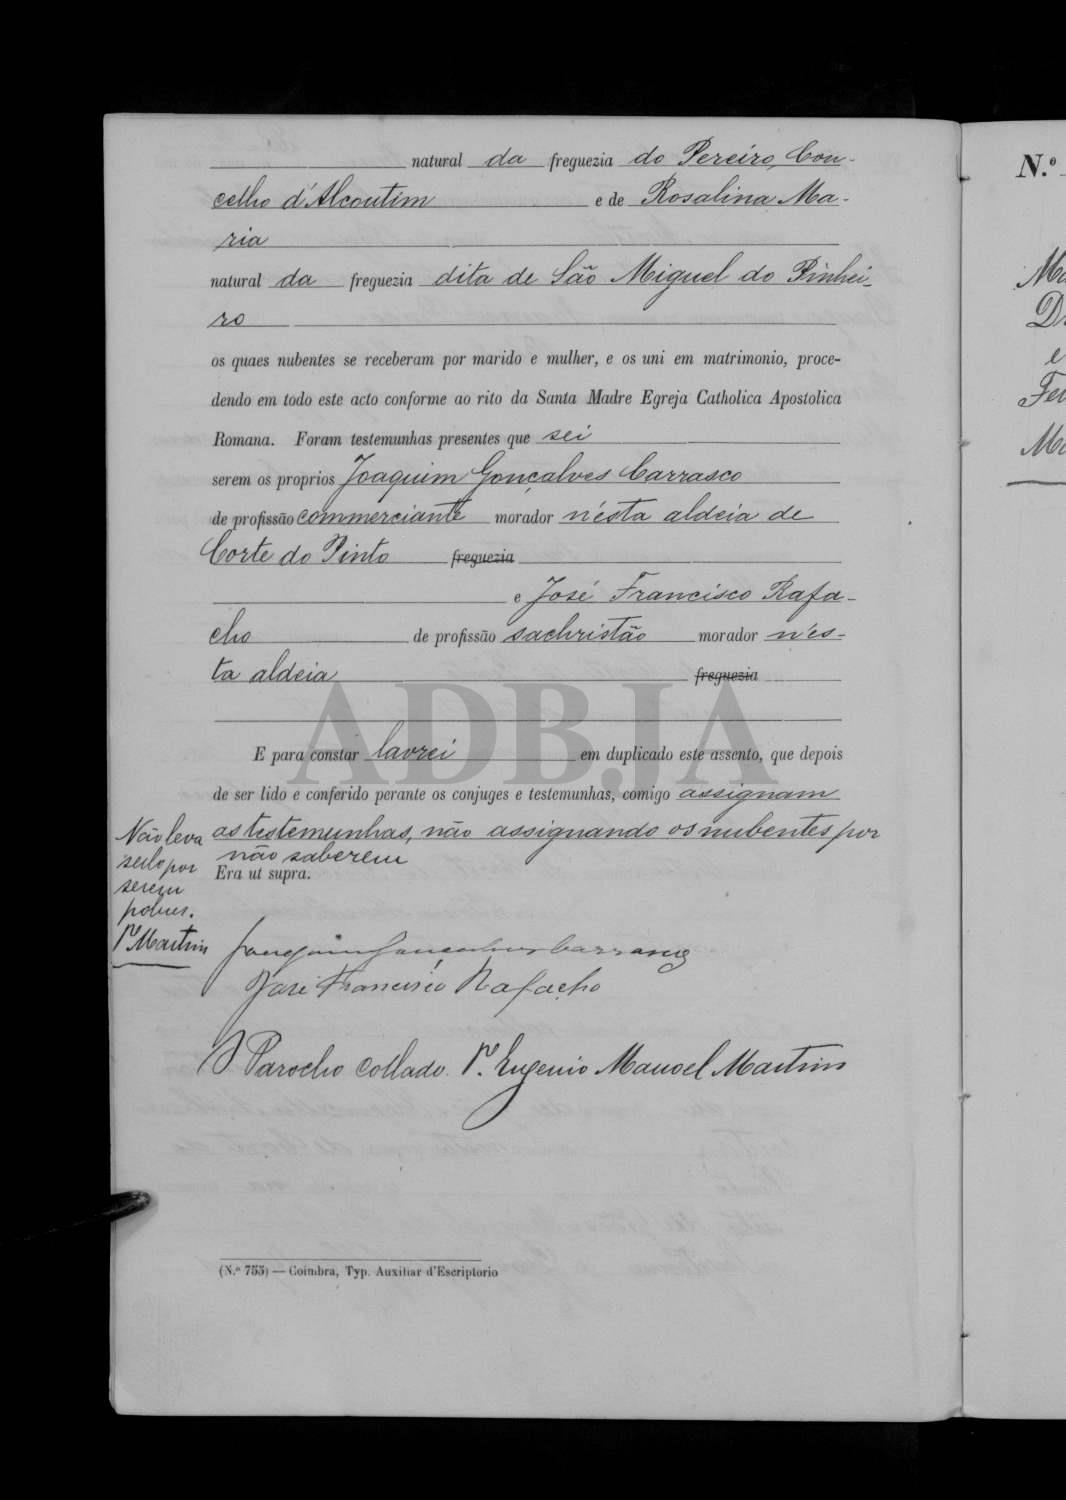 natural da freguezia do Pereiro, Con-
celho d'Alcoutim e de Rosalina Ma-
ria
natural da freguezia dita de São Miguel do Pinhei-
ro
os quaes nubentes se receberam por marido e mulher, e os uni em matrimonio, proce-
dendo em todo este acto conforme ao rito da Santa Madre Egreja Catholica Apostolica
Romana. Foram testemunhas presentes que sei
serem os proprios Joaquim Gonçalves Carrasco
de profissão commerciante morador n'ésta aldeia de
Corte do Pinto freguezia
e José Francisco Rafa-
cho de profissão sachristão morador n'és-
ta aldeia freguezia
ADBJA
E para constar lavrei em duplicado este assento, que depois
de ser lido e conferido perante os conjuges e testemunhas, comigo assignam
as testemunhas, não assignando os nubentes por
não saberem
Era ut supra.
Não leva
sello por
serem
pobres.
Pe Martins
Joaquim Gonçalves Carrasco
José Francisco Rafacho
O Parocho Collado. Pe. Eugenio Manoel Martins
(N.º 755) — Coimbra, Typ. Auxiliar d'Escriptorio
N.º
e